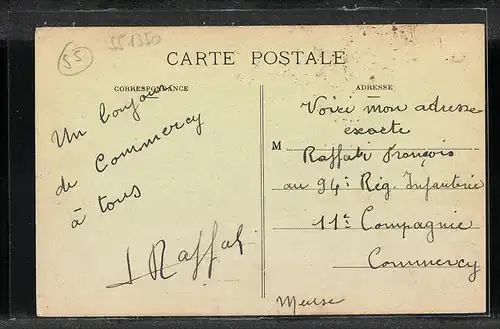 55
551350
CARTE POSTALE
CORRESPONDANCE
ADRESSE
Un bonjour
de Commercy
à tous
Voici mon adresse
exacte
M Raffali François
au 94e Rég. Infanterie
11e Compagnie
Commercy
Meuse